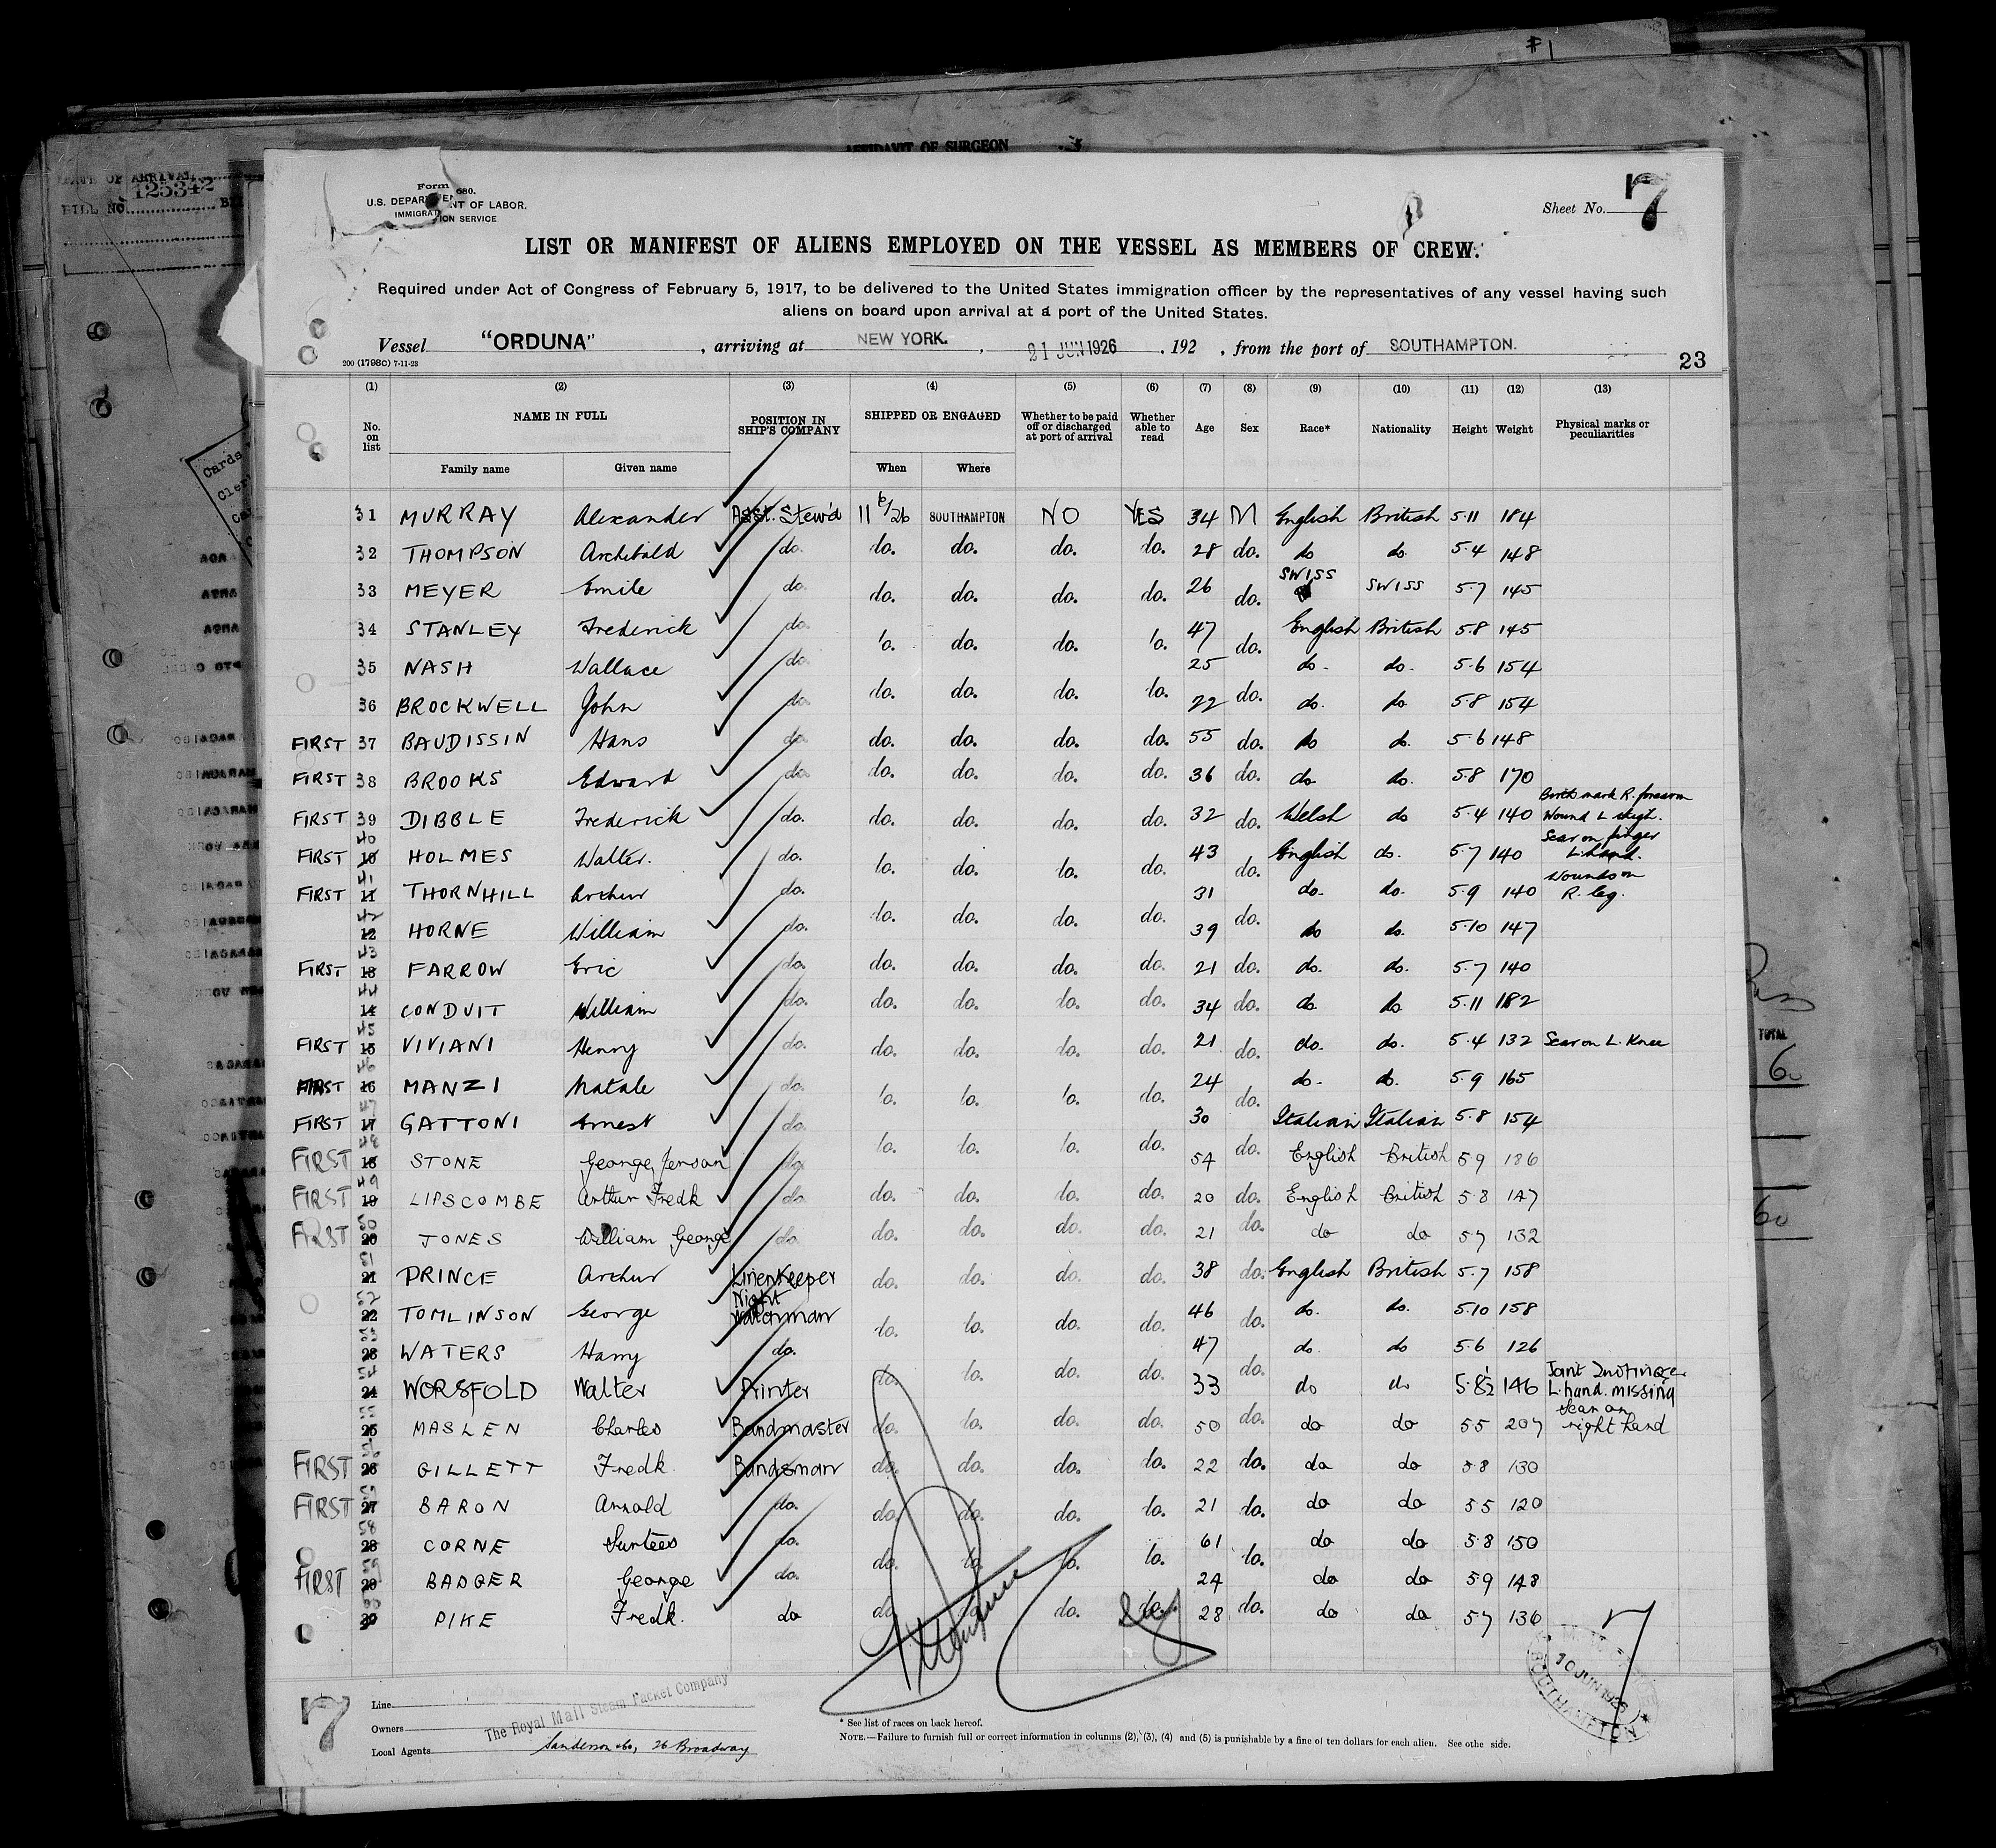 #1
AFFIDAVIT OF SURGEON
DATE OF ARRIVAL
125342
BILL No.
Form 680.
U.S. DEPARTMENT OF LABOR.
IMMIGRATION SERVICE
Sheet No. 7
LIST OR MANIFEST OF ALIENS EMPLOYED ON THE VESSEL AS MEMBERS OF CREW.
Required under Act of Congress of February 5, 1917, to be delivered to the United States immigration officer by the representatives of any vessel having such
aliens on board upon arrival at a port of the United States.
Vessel "ORDUNA", arriving at NEW YORK., 21 JUN 1926, 192 , from the port of SOUTHAMPTON.
200 (1798C) 7-11-23
23
(1) (2) (3) (4) (5) (6) (7) (8) (9) (10) (11) (12) (13)
No. on list NAME IN FULL POSITION IN SHIP'S COMPANY SHIPPED OR ENGAGED Whether to be paid off or discharged at port of arrival Whether able to read Age Sex Race* Nationality Height Weight Physical marks or peculiarities
Family name Given name When Where
31 MURRAY Alexander Asst. Stew'd 11 6/26 SOUTHAMPTON NO YES 34 M English British 5.11 184
32 THOMPSON Archibald do. do. do. do. do. 28 do. do do. 5.4 148
33 MEYER Emile do. do. do. do. do. 26 do. SWISS SWISS 5.7 145
34 STANLEY Frederick do. do. do. do. do. 47 do. English British 5.8 145
35 NASH Wallace do. 25 do. do. 5.6 154
36 BROCKWELL John do. do. do. do. do. 22 do. do. do 5.8 154
FIRST 37 BAUDISSIN Hans do. do. do. do. do. 55 do. do do. 5.6 148
FIRST 38 BROOKS Edward do. do. do. do. do. 36 do. do do. 5.8 170
FIRST 39 DIBBLE Frederick do. do. do. do. do. 32 do. Welsh do 5.4 140 Birth mark R. forearm Wound L thigh.
FIRST 40 HOLMES Walter. do. do. do. do. do. 43 do. English do. 5.7 140 Scar on finger L. hand.
FIRST 41 THORNHILL Arthur do. 31 do. do. 5.9 140 Wounds on R. leg.
42 HORNE William do. do. do. do. do. 39 do. do do. 5.10 147
FIRST 43 FARROW Eric do. do. do. do. do. 21 do. do. do. 5.7 140
44 CONDUIT William do. do. do. do. do. 34 do. do do 5.11 182
FIRST 45 VIVIANI Henry do. do. do. do. do. 21 do. do. do. 5.4 132 Scar on L. Knee
FIRST 46 MANZI Natale do. do. do. do. do. 24 do. do. do. 5.9 165
FIRST 47 GATTONI Ernest do. 30 Italian Italian 5.8 154
FIRST 48 STONE George Jenson do. do. do. do. do. 54 do. English British 5 9 186
FIRST 49 LIPSCOMBE Arthur Fredk do. do. do. do. do. 20 do. English British 5.8 147
FIRST 50 JONES William George do. do. do. do. do. 21 do. do do 5 7 132
51 PRINCE Arthur Linen Keeper do. do. do. do. 38 do. English British 5.7 158
52 TOMLINSON George Night Watchman do. do. do. do. 46 do. do. do. 5.10 158
53 WATERS Harry do. 47 do. do 5.6 126
54 WORSFOLD Walter Printer do. do. do. do. 33 do. do do 5.8½ 146 Joint 2nd finger L. hand. missing
55 MASLEN Charles Bandmaster do. do. do. do. 50 do. do do 5 5 207 Scar on right hand
FIRST 56 GILLETT Fredk. Bandsman do. do. do. do. 22 do. do do 5 8 130
FIRST 57 BARON Arnold do. do. do. do. do. 21 do. do do 5 5 120
58 CORNE Surtees do. 61 do do 5.8 150
FIRST 59 BADGER George do. do. do. do. do. 24 do. do do 5 9 148
60 PIKE Fredk. do do. do. do. do. 28 do. do do 5 7 136
7
Line
Owners The Royal Mail Steam Packet Company
Local Agents Sanderson & Co, 26 Broadway
* See list of races on back hereof.
NOTE.—Failure to furnish full or correct information in columns (2), (3), (4) and (5) is punishable by a fine of ten dollars for each alien. See othe side.
10 JUN 1926
SOUTHAMPTON
7
TOTAL
6
60